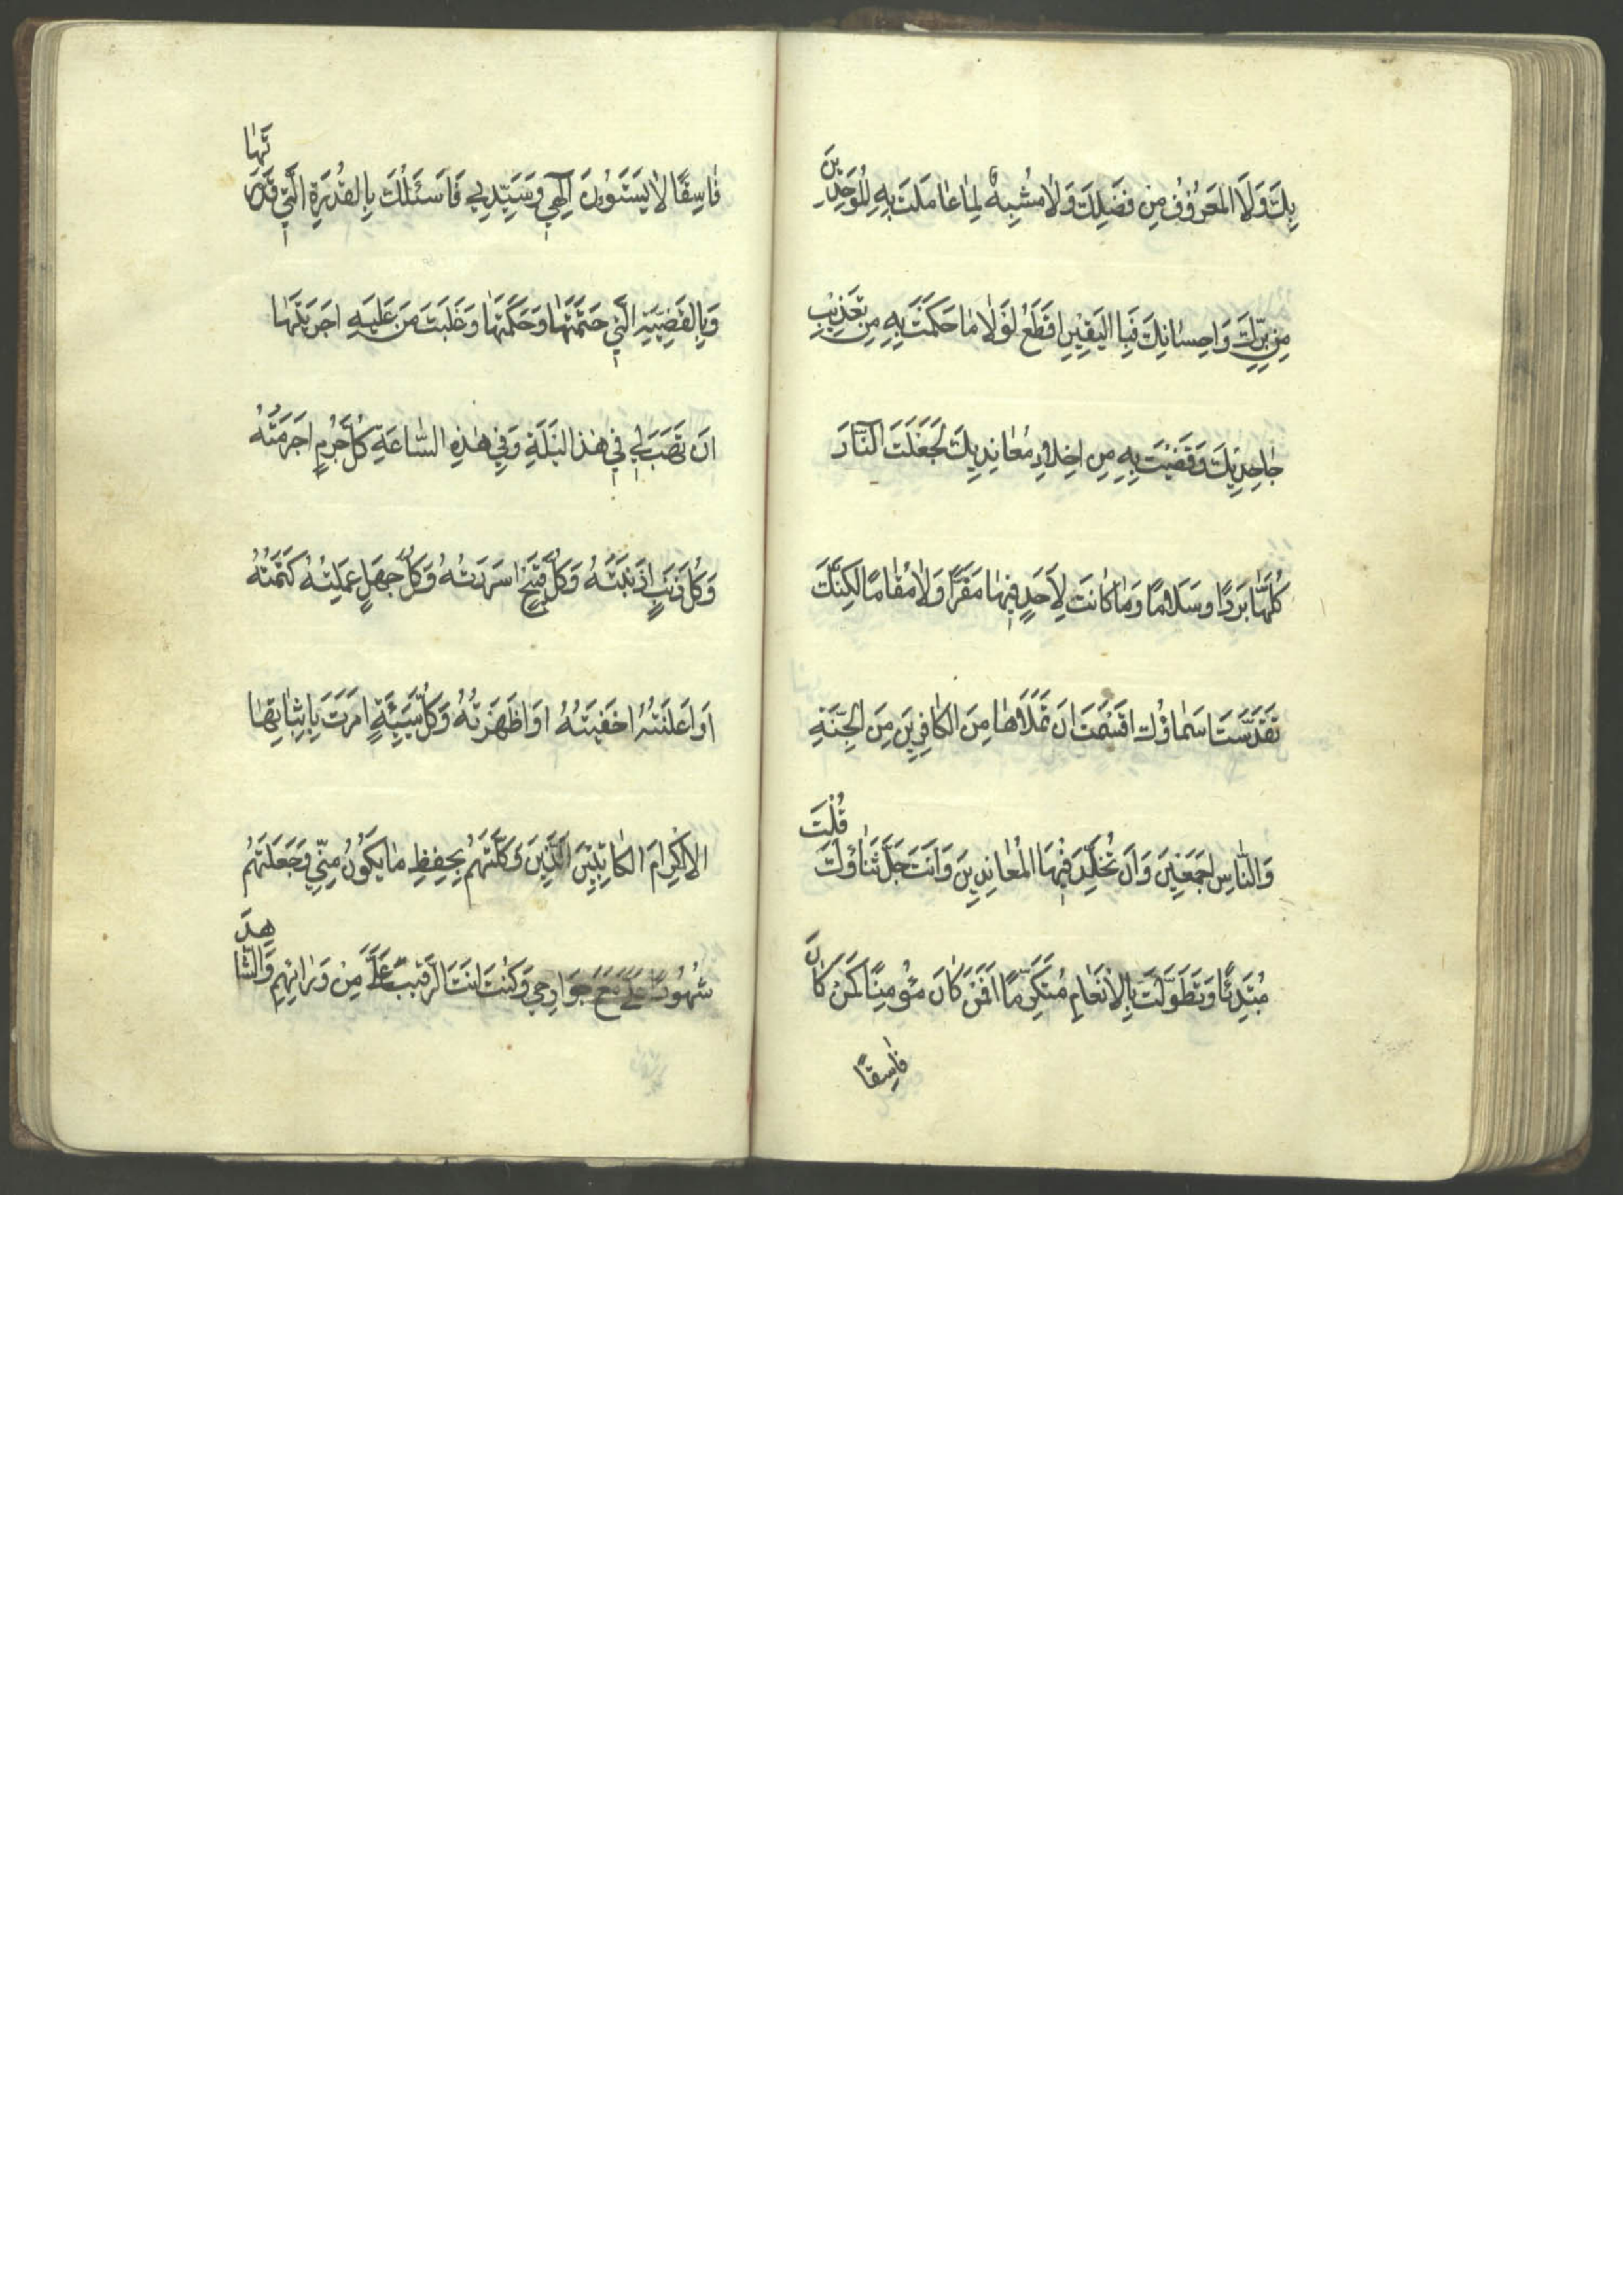 بِكَ وَلَا المَعرُوفُ مِن فَضلِكَ وَلَا مُشبِهٌ لِمَا عَامَلتَ بِهِ المُوَحِّدِينَ
مِن بِرِّكَ وَاحِسَانِكَ فَبِا اليَقِينِ اقطَعُ لَولَا مَا حَكَمتَ بِهِ مِن تَعذِيبِ
جَاحِدِيكَ وَقَضَيتَ بِهِ مِن اِخلَادِ مُعَانِدِيكَ لَجَعَلتَ النَّارَ
كُلَّهَا بَردًا وسَلَامًا وَمَا كَانَت لِاَحَدٍ فِيهَا مَقَرًّا وَلَا مُقَامًا لَكِنَّكَ
تَقَدَّسَتَ اسَمَاؤُكَ اقسَمتَ اَن تَملَاهَا مِنَ الكَافِرِينَ مِنَ الجِنَّةِ
وَالنَّاسِ اَجمَعِينَ وَاَن تُخَلِّدَ فِيهَا المُعَانِدِينَ وَاَنتَ جَلَّ ثَنَاؤُكَ قُلْتَ
مُبتَدِئًا وَتَطَوَّلتَ بِالاِنعَامِ مُتَكَرِّمًا اَفَمَن كَانَ مُؤمِنًا كَمَن كَانَ
فَاسِقًا
فَاسِقًا لَا يَستَوُونَ اِلهِي وسَيِّدِي فَاَسئَلُكَ بِالقُدرَةِ الَّتِي قَدَّرتَهَا
وَبِالقَضِيَّةِ الَّتِي حَتَمتَهَا وَحَكَمتَهَا وَغَلَبتَ مَن عَلَيهِ اجرَيتَهَا
اَن تَهَبَ لِي فِي هَذا اليَلَةِ وَفِي هَذِهِ السَّاعَةِ كُلَّ جُرمٍ اَجرَمتُهُ
وَكُلَّ ذَنبٍ اَذنَبتُهُ وَكُلَّ قَبِيحٍ اَسرَرتُهُ وَكُلَّ جَهلٍ عَمِلتُهُ كَتَمتُهُ
اَو اَعلَنتُهُ اَخفَيتُهُ اَو اَظهَرتُهُ وَكُلَّ سَيِّئَةٍ اَمَرتَ بِاِثبَاتِهَا
الاكِرَامَ الكَاتِبِينَ الَّذِينَ وَكَّلتَهُم بِحِفظِ مَا يَكُونُ مِنِّي وَجَعَلتَهُم
شُهُودًا عَلَيَّ مَعَ جَوَارِحِي وَكُنتَ اَنتَ الرَّقِيبَ عَلَيَّ مِن وَرَائِهِم وَالشَّاهِدَ